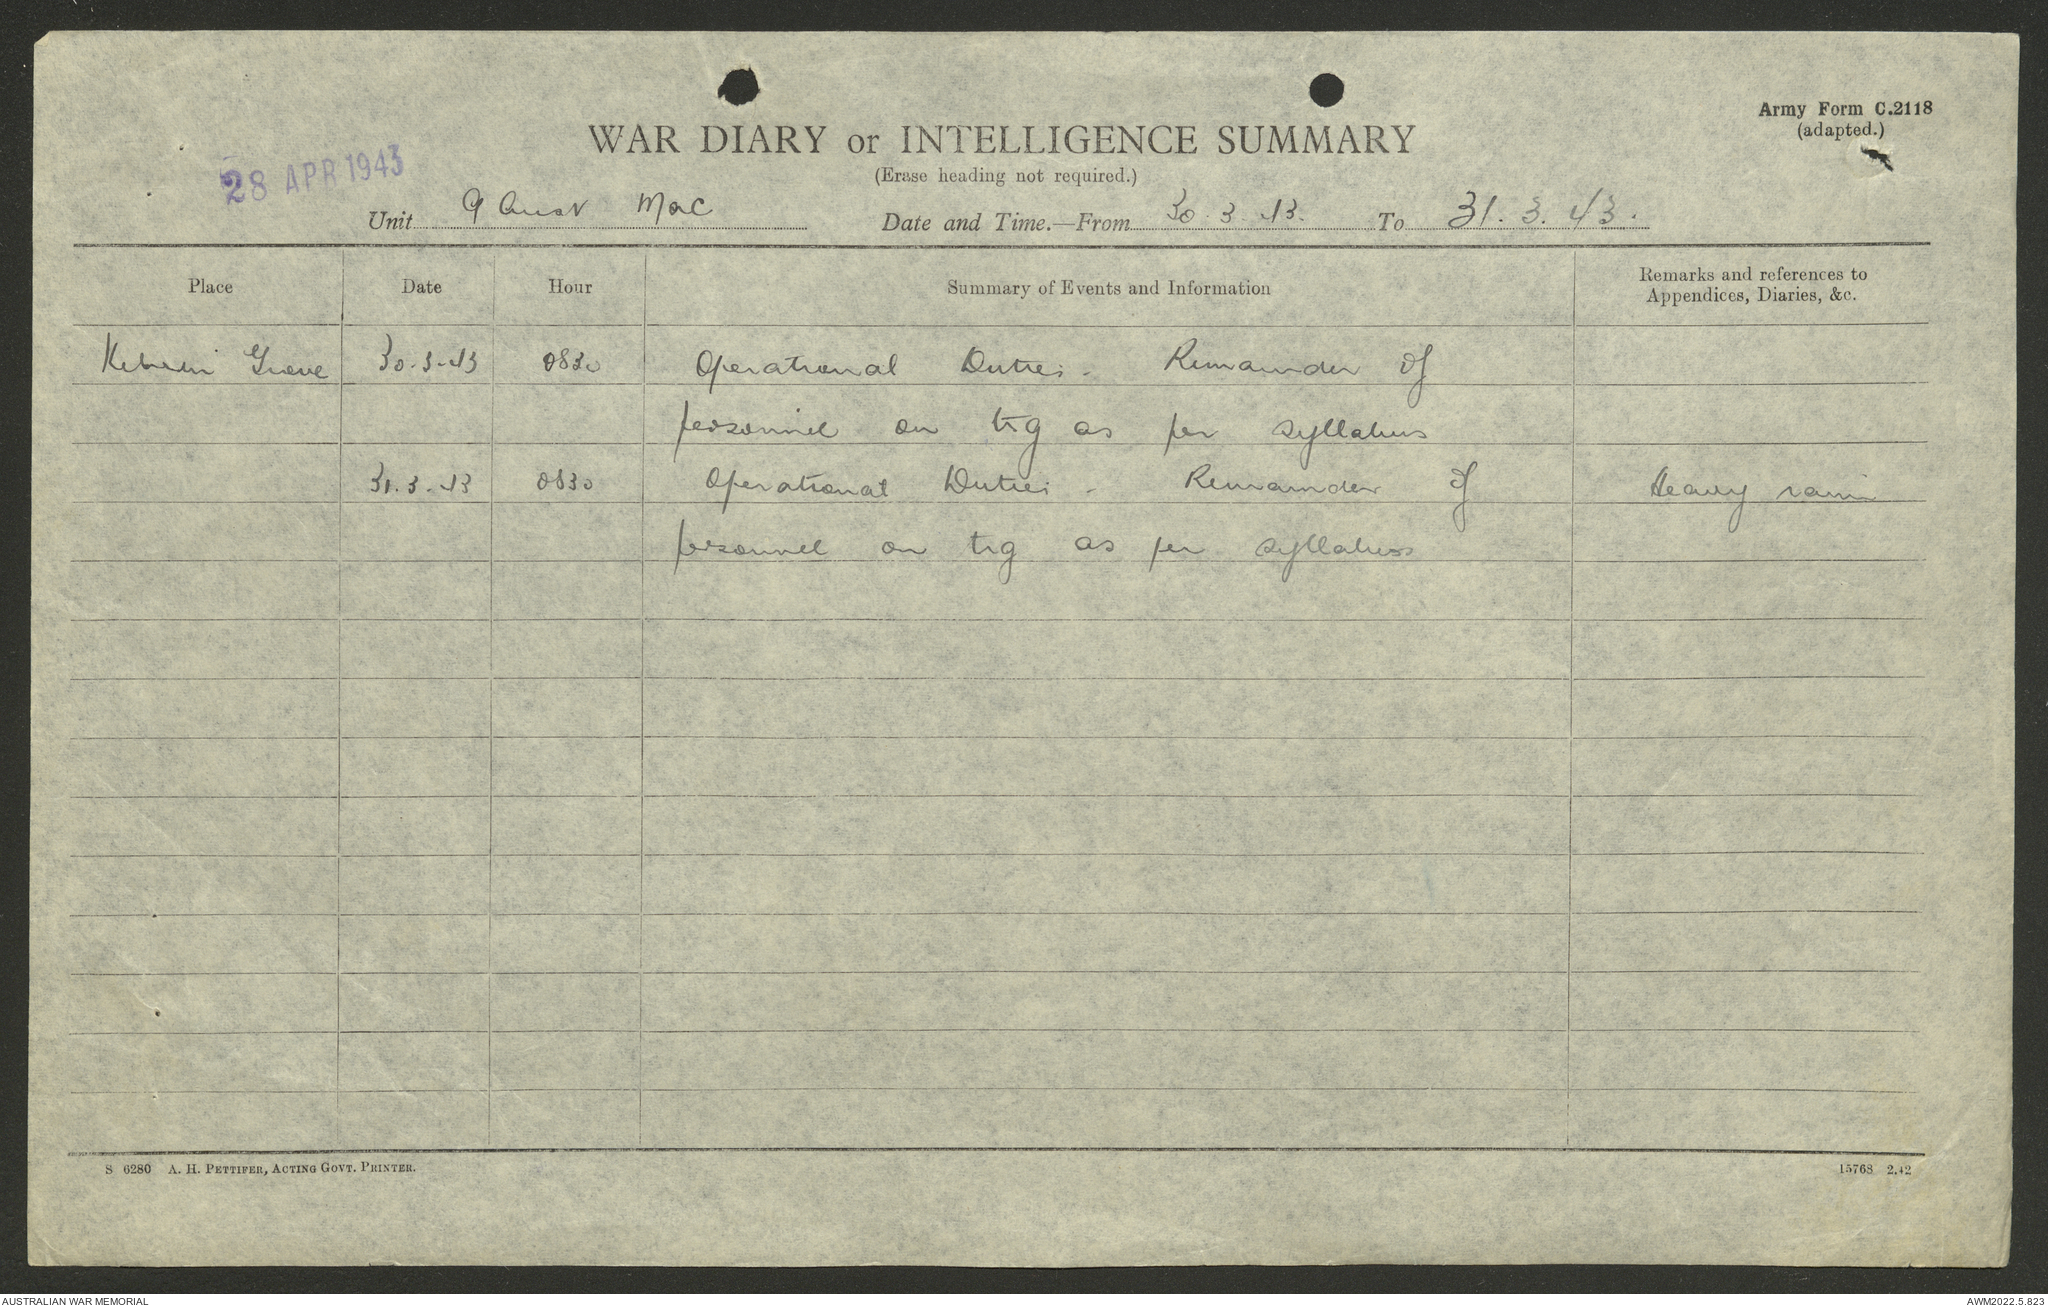 Army Form C.2118
(adapted.)
WAR DIARY or INTELLIGENCE SUMMARY
(Erase heading not required.)
28 APR 1943
Unit 9 Aust MAC Date and Time.—From 30.3.43. To 31.3.43.
Place Date Hour Summary of Events and Information Remarks and references to
Appendices, Diaries, &c.
Kelvin Grove 30.3.43 0830 Operational Duties. Remainder of
personnel on trg as per syllabus
31.3.43 0830 Operational Duties. Remainder of Heavy rain
personnel on trg as per syllabus
S 6280 A. H. PETTIFER, ACTING GOVT. PRINTER. 15768 2.42
AUSTRALIAN WAR MEMORIAL AWM2022.5.823